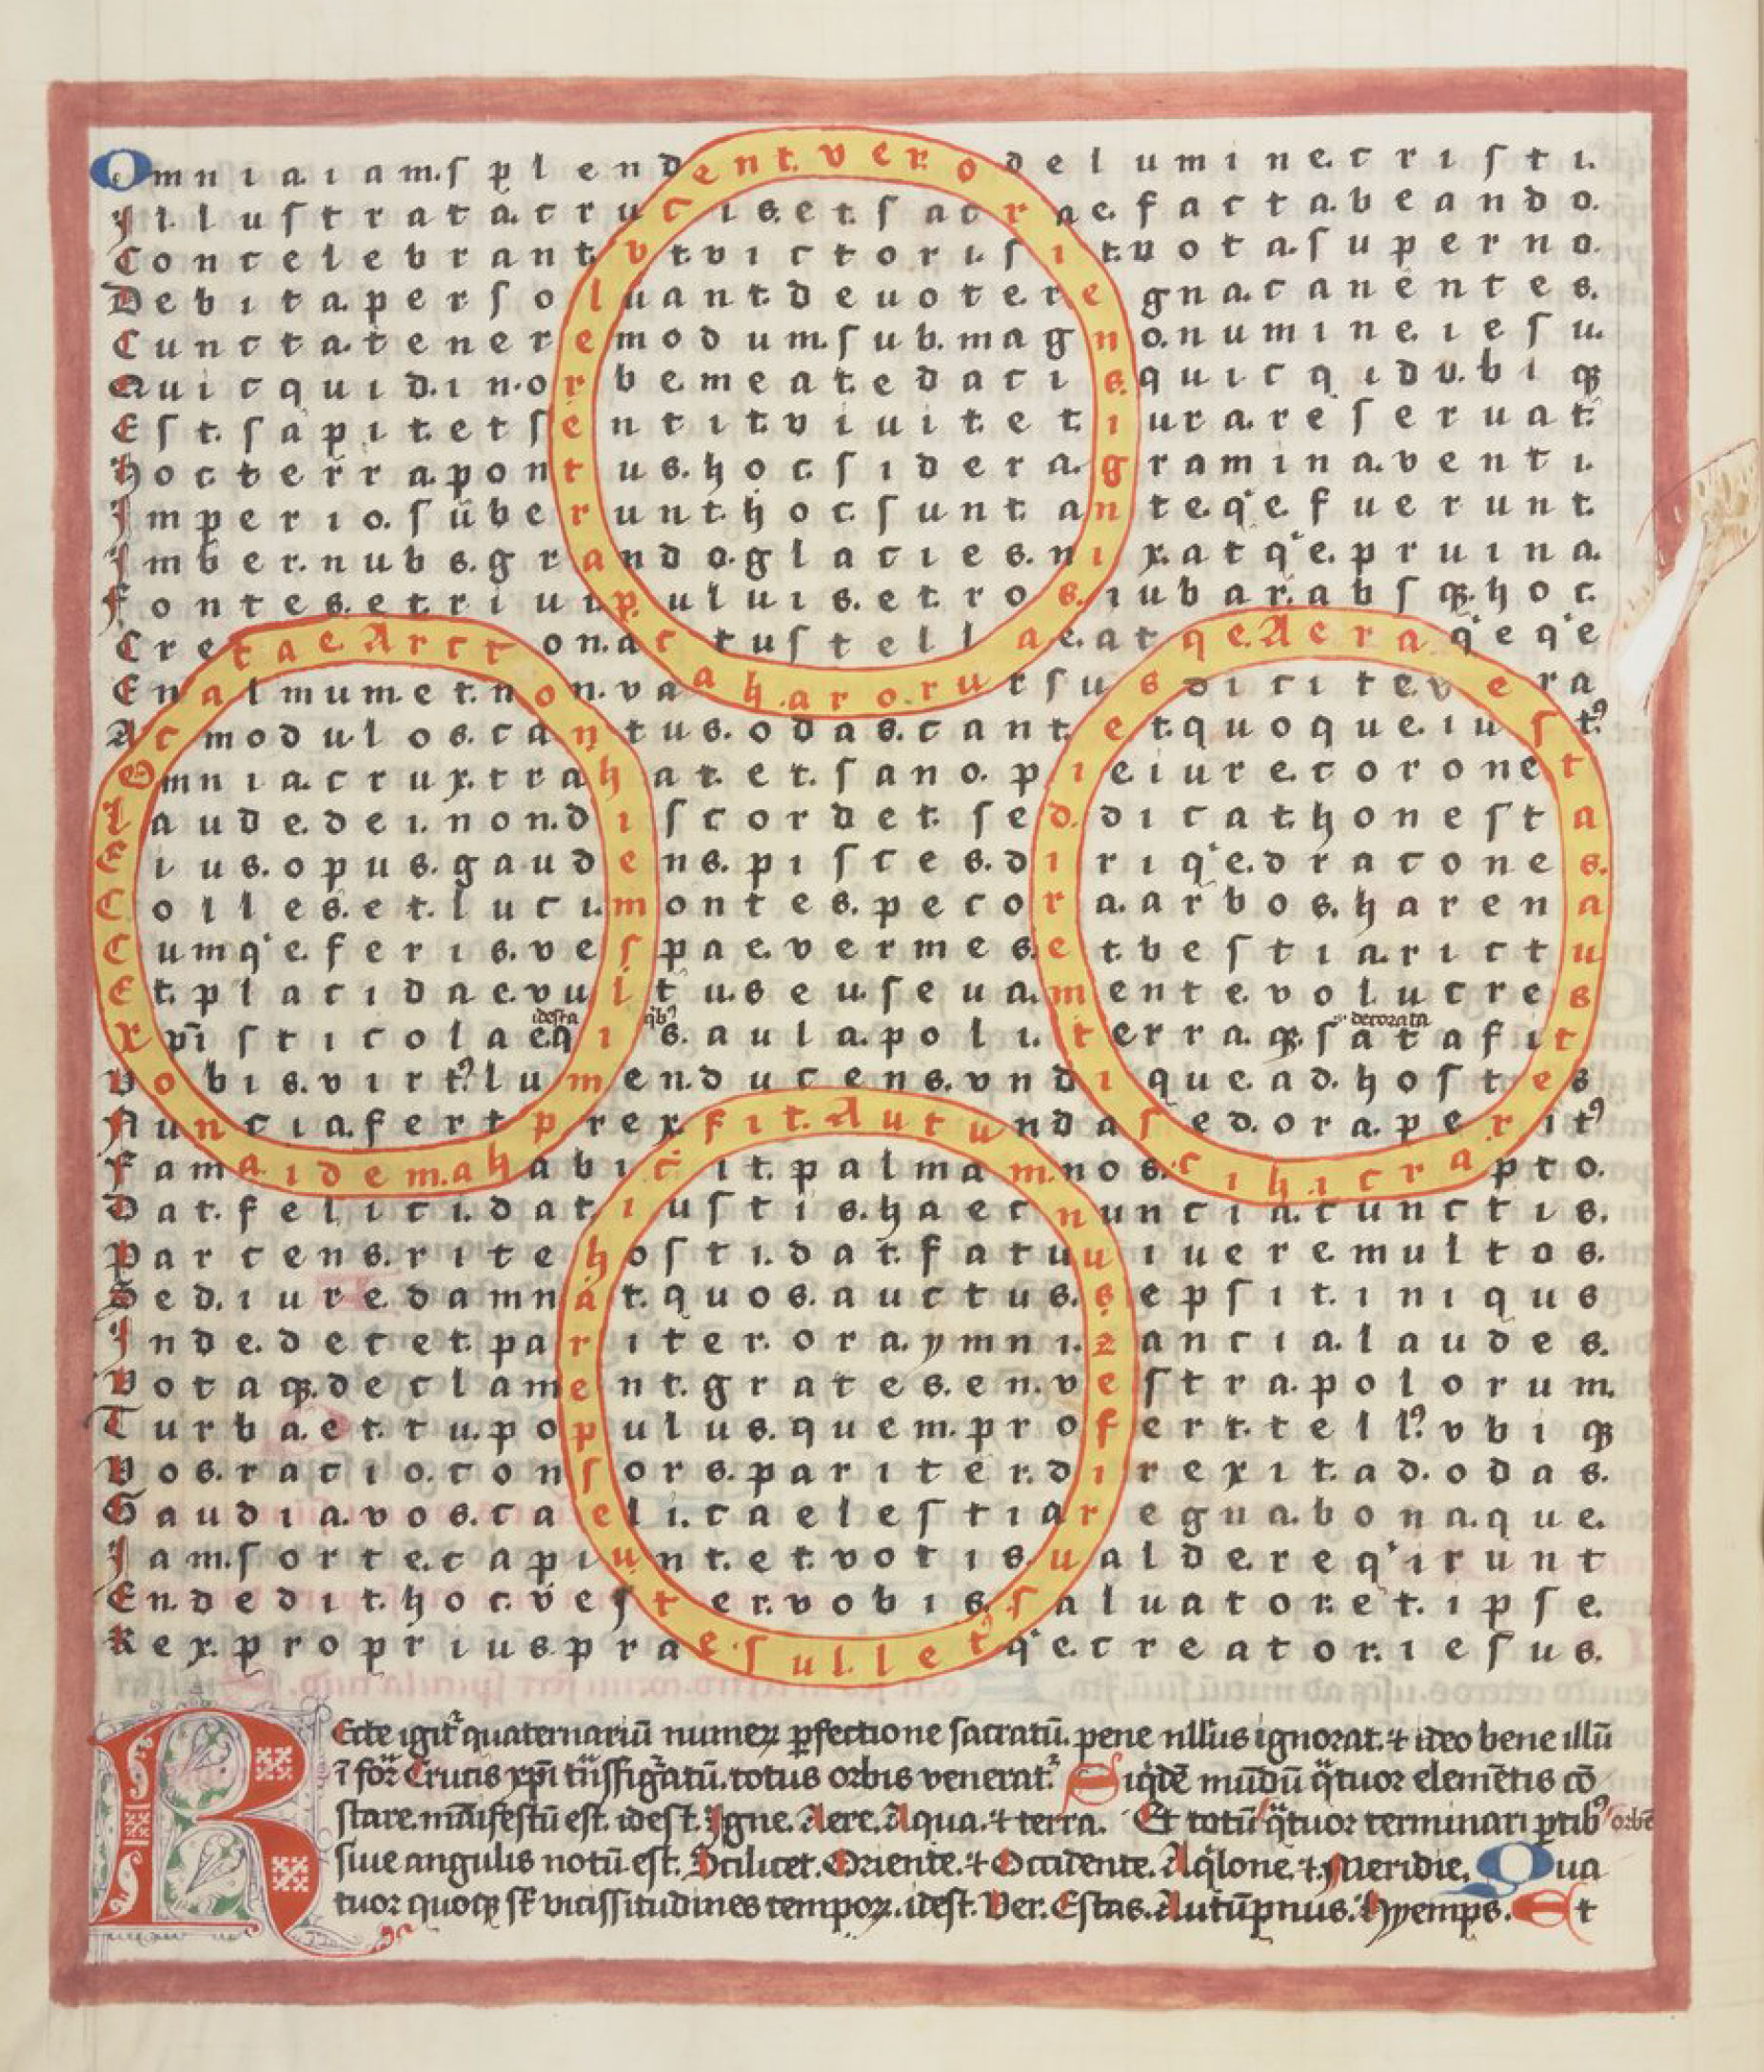 Omnia iam splendent vero de lumine cristi.
Illustrata crucis et sacrae facta beando.
Concelebrant vt victori sit vota superno.
Debita persoluant deuote regna canentes.
Cuncta tenere modum sub magno numine iesu.
Quicquid in orbe meat e dacis quicqid vbiqꝫ
Est sapit et sentit viuit et iura reseruat.
Hoc terra pontus hoc sidera gramina venti.
Imperio suberunt hoc sunt anteq'e fuerunt.
Imber nubs grando glacies nix atq'e pruina.
Fontes et riui puluis et ros iubar absqꝫ hoc.
Cretae Arcton ac tu stellae atqe Aera q'eq'e
En almum et non va a harororursus dicite vera
Ac modulos cantus odas cant et quoque iust'
Omnia crux trahat et sano pie iure coronet
Laude dei non discordet sed dicat honestas.
Eius opus gaudens pisces diriq'e dracones.
Colles et luci montes pecora arbos harena
Cumq'e feris vespae vermes et bestia rictu
Et placidae vultus euseua mente volucres
idesta qib' decorata
xpisticolae qis aula poli terraqꝫ sata fit
Vobis virt' lumen ducens vndique ad hostes
Nuncia fert prex fit Autundas ed ora perit'
Fama idemahabicit palmam nos cihicrapto.
Dat felici dat iustis haec nuncia cunctis.
Parcens rite hosti dat fatu uiuere multos.
Sed iure damnat quos auctus sepsit iniqus
Inde decet pariter ora ymnizancia laudes.
Votaqꝫ declament grates en vestra polorum.
Turba et tu populus quem profert tell' vbiqꝫ
Vos racio consors pariter direxit ad odas.
Gaudia vos caeli caelestia regna bonaque.
Iam sorte capiunt et votis ualde req'irunt
En dedit hoc vester vobis saluator et ipse.
Rex proprius praesul let'q'e creator iesus.
Recte igit' quaternariū numeꝝ ꝑfectione sacratū. pene nllus ignorat. ⁊ ideo bene illū
ī for Crucis xp̄i tn̄sfigratū. totus orbis venerat'. Siqdē mūdū qtuor elemētis cō
stare. mānifestū est. idest. Igne. Aere. Aqua. ⁊ terra. Et totū qtuor terminari ꝑtib' orbē
siue angulis notū est. Scilicet. Oriente. ⁊ Occidente. Aqilone. ⁊ Meridie. Qua
tuor quoqꝫ st̄ vicissitudines tempoꝝ. idest. Ver. Estas. Autūpnus. Hyemps. Et